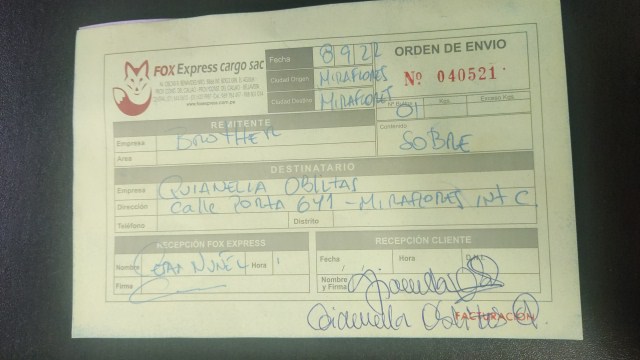 FOX Express cargo sac
www.foxexpress.com.pe
Fecha 8/9/22
Ciudad Origen MIRAFLORES
Ciudad Destino MIRAFLORES
ORDEN DE ENVIO
Nº 040521
01 Kgs. Exceso Kgs.
Contenido
SOBRE
REMITENTE
Empresa BROTHER
Area
DESTINATARIO
Empresa QUIANELLA OBLITAS
Dirección Calle PORTA 641 - MIRAFLORES INT C
Teléfono Distrito
RECEPCIÓN FOX EXPRESS
Nombre NUÑEZ Hora
Firma
RECEPCIÓN CLIENTE
Fecha / / Hora D.N.I.
Nombre
y Firma
FACTURACION